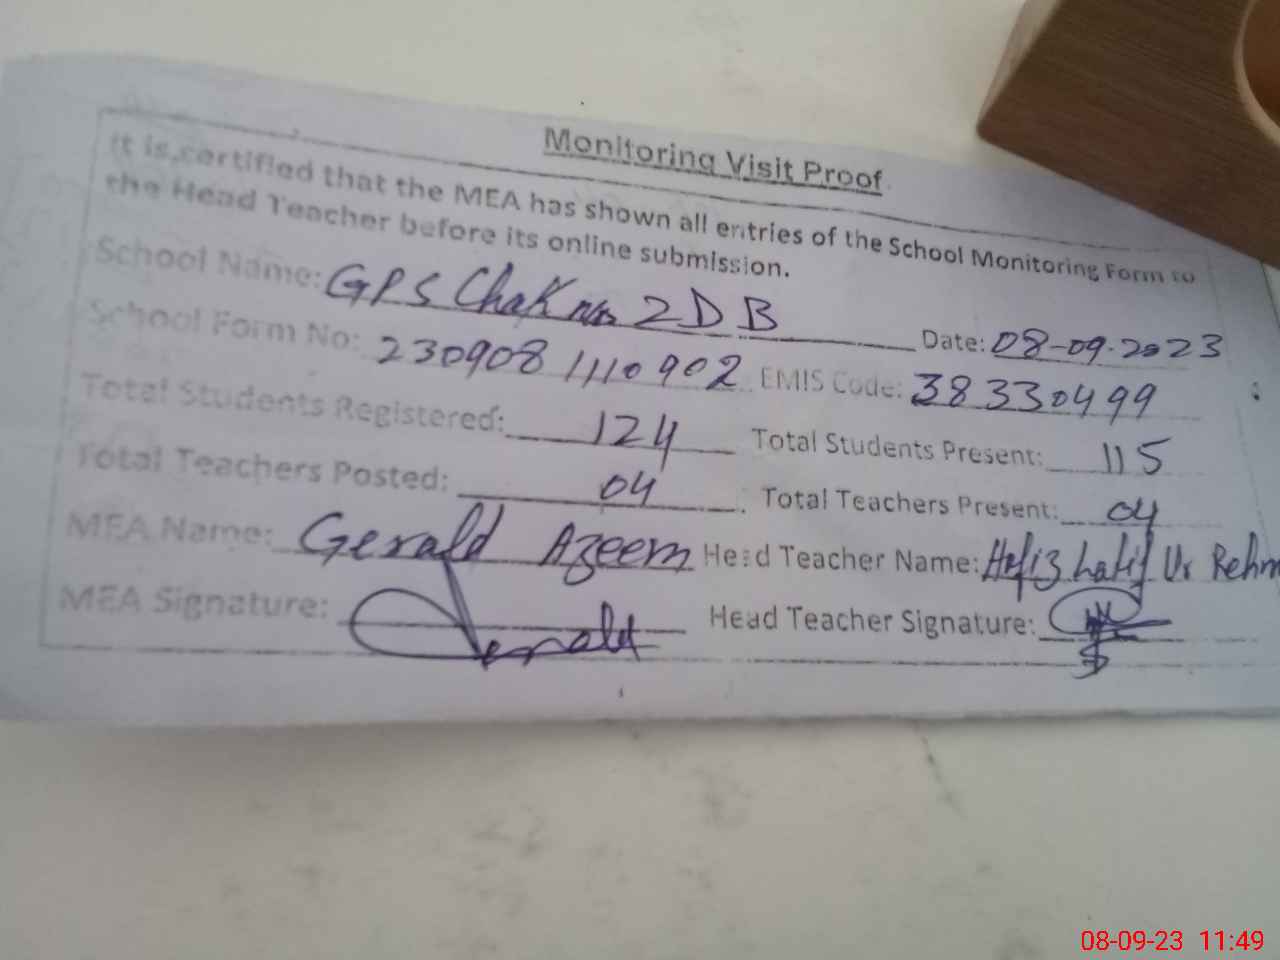 Monitoring Visit Proof
It is certified that the MEA has shown all entries of the School Monitoring Form to
the Head Teacher before its online submission.
School Name: GPS Chak no. 2 DB Date: 08-09-2023
School Form No: 2309081110902 EMIS Code: 38330499
Total Students Registered: 124 Total Students Present: 115
Total Teachers Posted: 04 Total Teachers Present: 04
MEA Name: Gerald Azeem Head Teacher Name: Hafiz Latif Ur Rehm
MEA Signature: Gerald Head Teacher Signature:
08-09-23 11:49